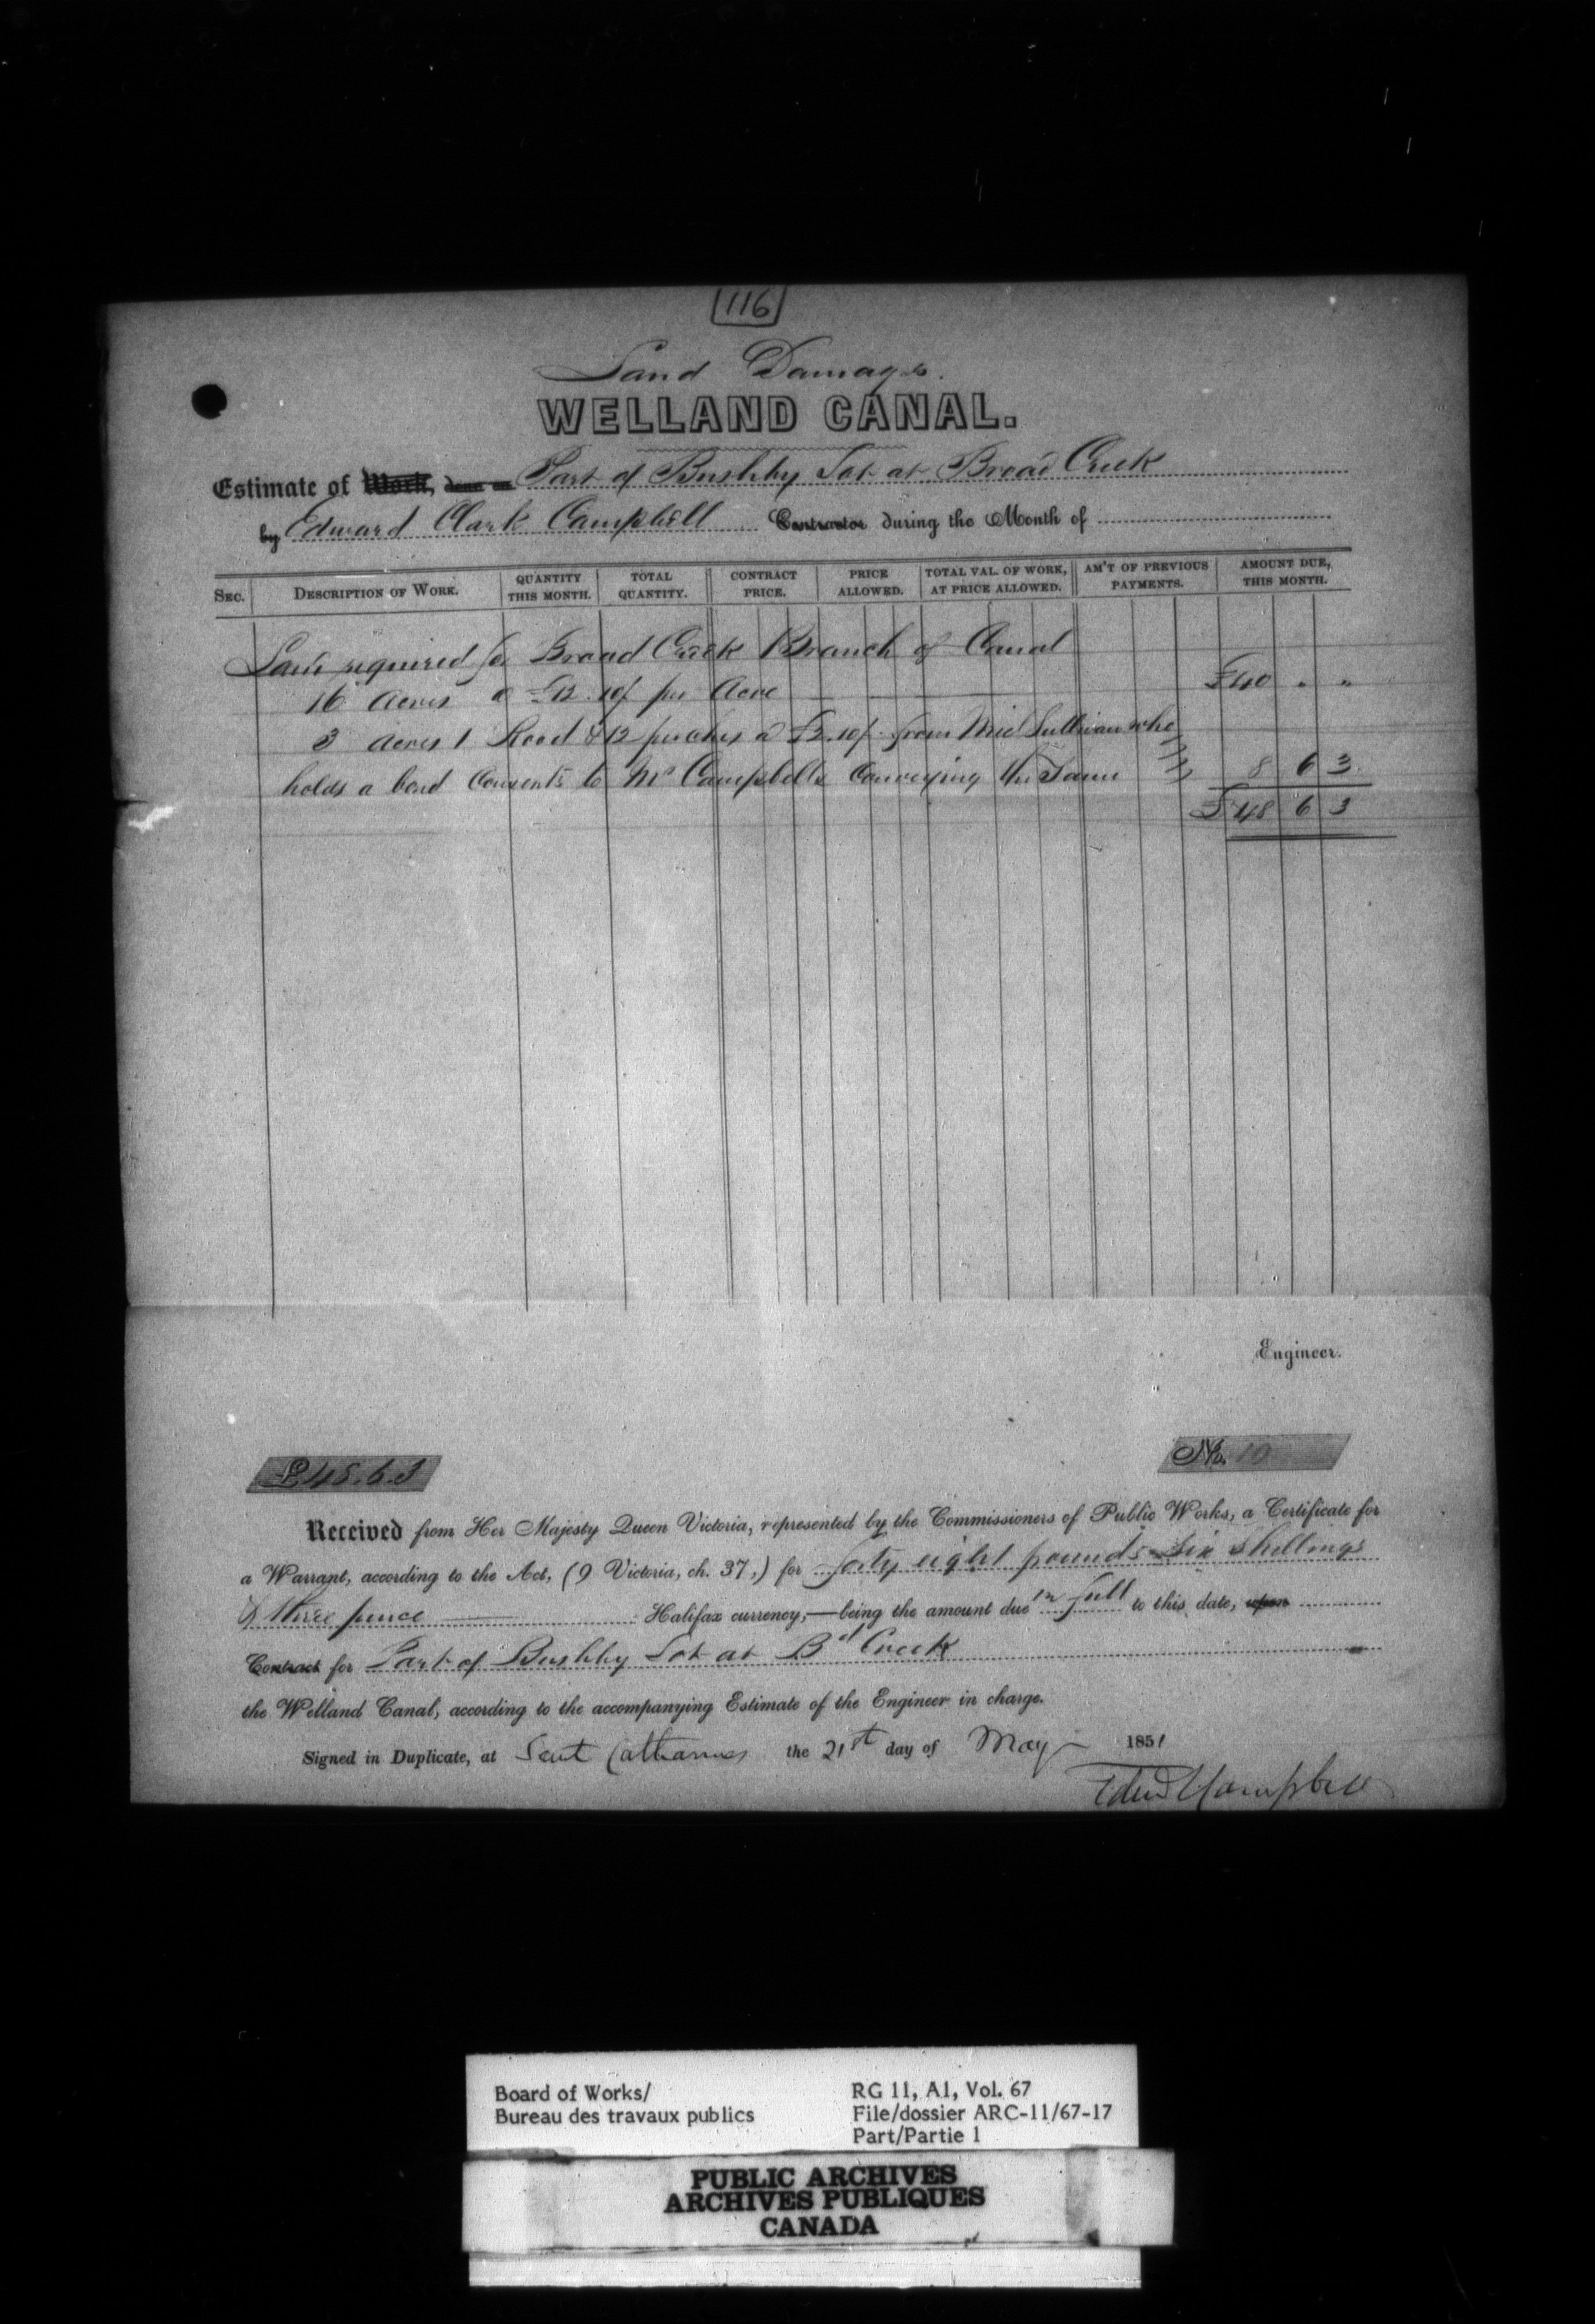 116
Land Damages.
WELLAND CANAL.
Estimate of Work, done on Part of Bushby Lot at Broad Creek
by Edward Clark Campbell Contractor during the Month of
SEC. DESCRIPTION OF WORK. QUANTITY THIS MONTH. TOTAL QUANTITY. CONTRACT PRICE. PRICE ALLOWED. TOTAL VAL. OF WORK, AT PRICE ALLOWED. AM'T OF PREVIOUS PAYMENTS. AMOUNT DUE, THIS MONTH.
Land required for Broad Creek Branch of Canal
16 Acres a 10/ per Acre £40 " "
3 Acres 1 Rood & 12 perches a £2.10/ from Sullivan who
holds a bond Consents to Mr Campbells Conveying the Same 8 6 3
£48 6 3
Engineer.
£48.6.3 No. 10
Received from Her Majesty Queen Victoria, represented by the Commissioners of Public Works, a Certificate for
a Warrant, according to the Act, (9 Victoria, ch. 37,) for forty eight pounds six shillings
& three pence Halifax currency,—being the amount due in full to this date, upon
Contract for Part of Bushby Lot at Bd Creek
the Welland Canal, according to the accompanying Estimate of the Engineer in charge.
Signed in Duplicate, at Saint Catharines the 21st day of May 1851
Edwd C Campbell
Board of Works/ RG 11, A1, Vol. 67
Bureau des travaux publics File/dossier ARC-11/67-17
Part/Partie 1
PUBLIC ARCHIVES
ARCHIVES PUBLIQUES
CANADA